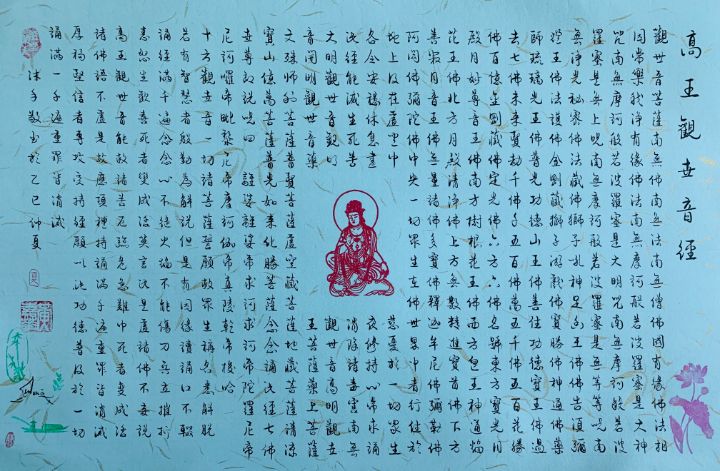 高王觀世音經
觀世音菩薩南無佛南無法南無僧佛國有緣佛法相
因常樂我淨有緣佛法南無摩訶般若波羅蜜是大神
咒南無摩訶般若波羅蜜是大明咒南無摩訶般若波
羅蜜是無上咒南無摩訶般若波羅蜜是無等等咒南
無淨光秘密佛法藏佛獅子吼神足幽王佛佛告須彌
燈王佛法護佛金剛藏獅子遊戲佛寶勝佛神通佛藥
師琉璃光王佛普光功德山王佛善住功德寶王佛過
去七佛未來賢劫千佛千五百佛萬五千佛五百花勝
佛百億金剛藏佛定光佛六方六佛名號東方寶光月
殿月妙尊音王佛南方樹根花王佛西方皂王神通焰
花王佛北方月殿清淨佛上方無數精進寶首佛下方
善寂月音王佛無量諸佛多寶佛釋迦牟尼佛彌勒佛
阿閦佛彌陀佛中央一切眾生在佛世界中者行住於
地上及在虛空中慈憂於一切眾生
各令安穩休息晝夜修持心常求誦
此經能滅生死苦消除諸毒害南無
大明觀世音觀明觀世音高明觀世
音開明觀世音藥王菩薩藥上菩薩
文殊師利菩薩普賢菩薩虛空藏菩薩地藏菩薩清涼
寶山億萬菩薩普光如來化勝菩薩念念誦此經七佛
世尊即說咒曰 離婆離婆帝求訶求訶帝陀羅尼帝
尼訶羅帝毗黎尼帝摩訶伽帝真陵乾帝梭哈
十方觀世音一切諸菩薩誓願救眾生稱名悉解脫
若有智慧者殷勤為解說但是有因緣讀誦口不輟
誦經滿千遍念念心不絕火焰不能傷刀兵立摧折
恚怒生歡喜死者變成活莫言此是虛諸佛不妄說
高王觀世音能救諸苦厄臨危急難中死者變成活
諸佛語不虛是故應頂禮持誦滿千遍重罪皆消滅
厚福堅信者專攻受持經願以此功德普及於一切
誦滿一千遍重罪皆消滅
沐手敬書於乙巳仲夏